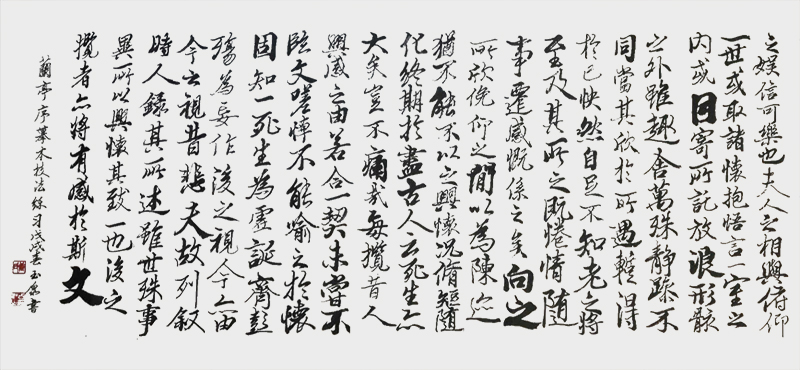 之娛信可樂也夫人之相與俯仰
一世或取諸懷抱悟言一室之
內或因寄所託放浪形骸
之外雖趣舍萬殊靜躁不
同當其欣於所遇暫得
於己快然自足不知老之將
至及其所之既惓情隨
事遷感慨係之矣向之
所欣俛仰之間以為陳迹
猶不能不以之興懷況脩短隨
化終期於盡古人云死生亦
大矣豈不痛哉每攬昔人
興感之由若合一契未嘗不
臨文嗟悼不能喻之於懷
固知一死生為虛誕齊彭
殤為妄作後之視今亦由
今之視昔悲夫故列叙
時人錄其所述雖世殊事
異所以興懷其致一也後之
攬者亦將有感於斯文
蘭亭序摹本技法練习戊戌書